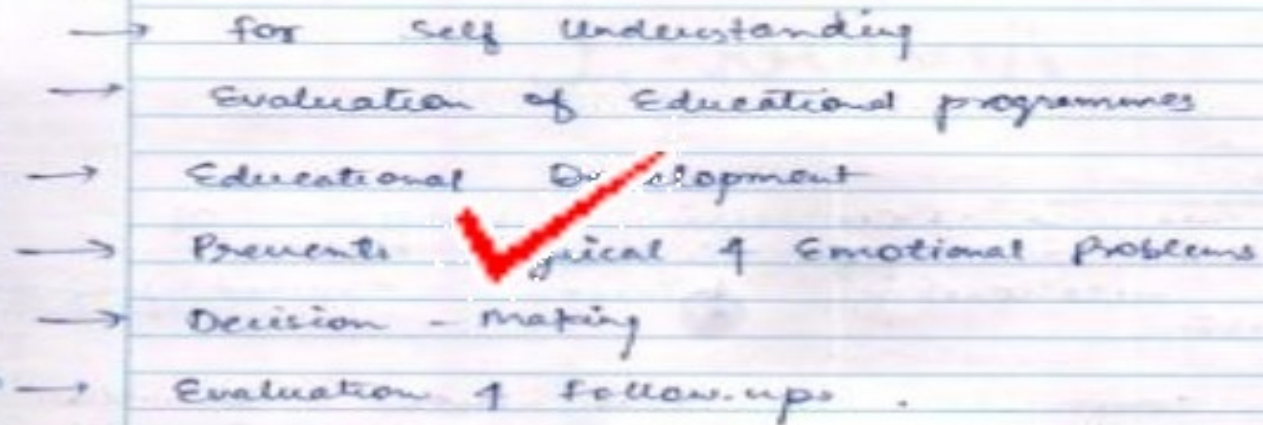 → for Self Understanding
→ Evaluation of Educational programmes
→ Educational Development
→ Prevents & Emotional Problems
→ Decision - Making
→ Evaluation & Follow-ups.